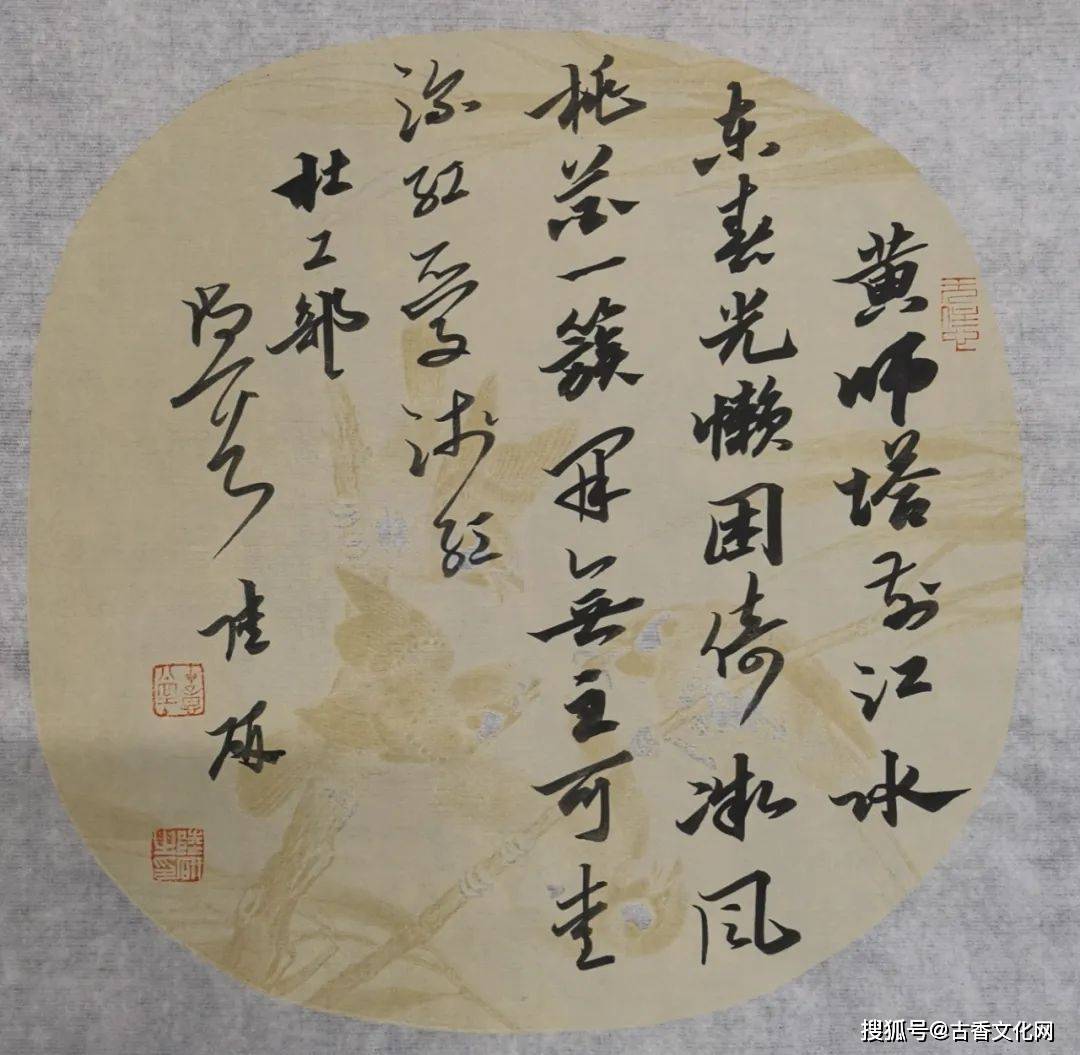 黄师塔前江水
东春光懒困倚微风
桃花一簇开無主可爱
深红爱浅红
杜工部
陆研
陸研之印
搜狐号@古香文化网